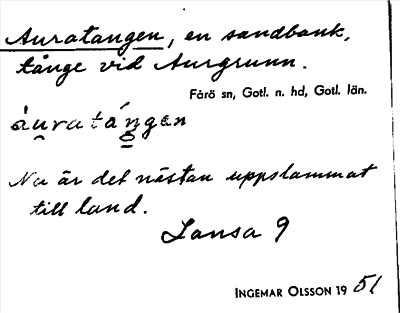 Auratangen, en sandbank,
tånge vid Aurgrunn.
Fårö sn, Gotl. n. hd, Gotl. län.
áu̯ratáŋgen
Nu är det nästan uppslammat
till land.
Lansa 9
INGEMAR OLSSON 1951